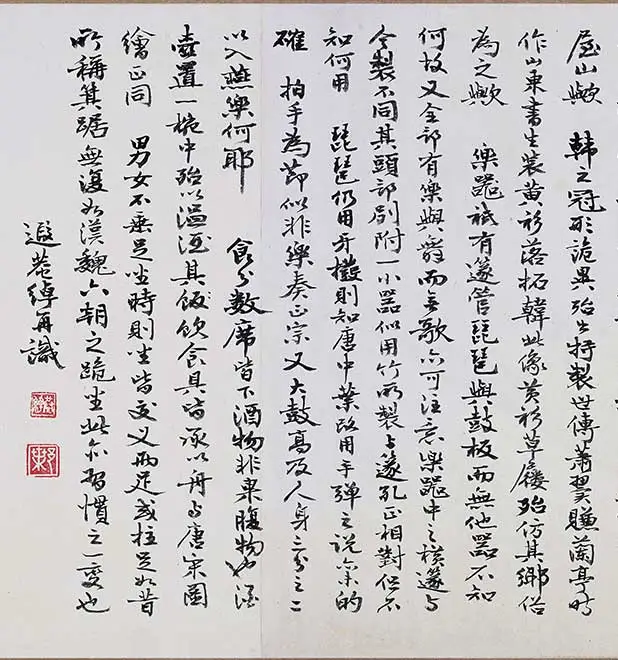 屋山歟　韓之冠形詭異殆出特製世傳蕭翼賺蘭亭時
作山東書生裝黃衫落拓韓此像黃衫草屨殆仿其鄉俗
為之歟　樂器祗有篴管琵琶與鼓板而無他器不知
何故又全部有樂與舞而無歌亦可注意樂器中之橫篴与
今製不同其頭部別附一小器似用竹所製与篴孔正相對但不
知何用　琵琶仍用牙撥則知唐中葉改用手彈之說亦未的
確　拍手為節似非樂奏正宗又大鼓高及人身三分之二
以入燕樂何耶　食分數席皆下酒物非果腹物也酒
壺置一椀中殆以溫酒其飯飲食具皆承以舟与唐宋圖
繪正同　男女不垂足坐時則坐皆交叉兩足或拄足如昔
所稱箕踞無復如漢魏六朝之跪坐此亦習慣之一變也
遐菴綽再識